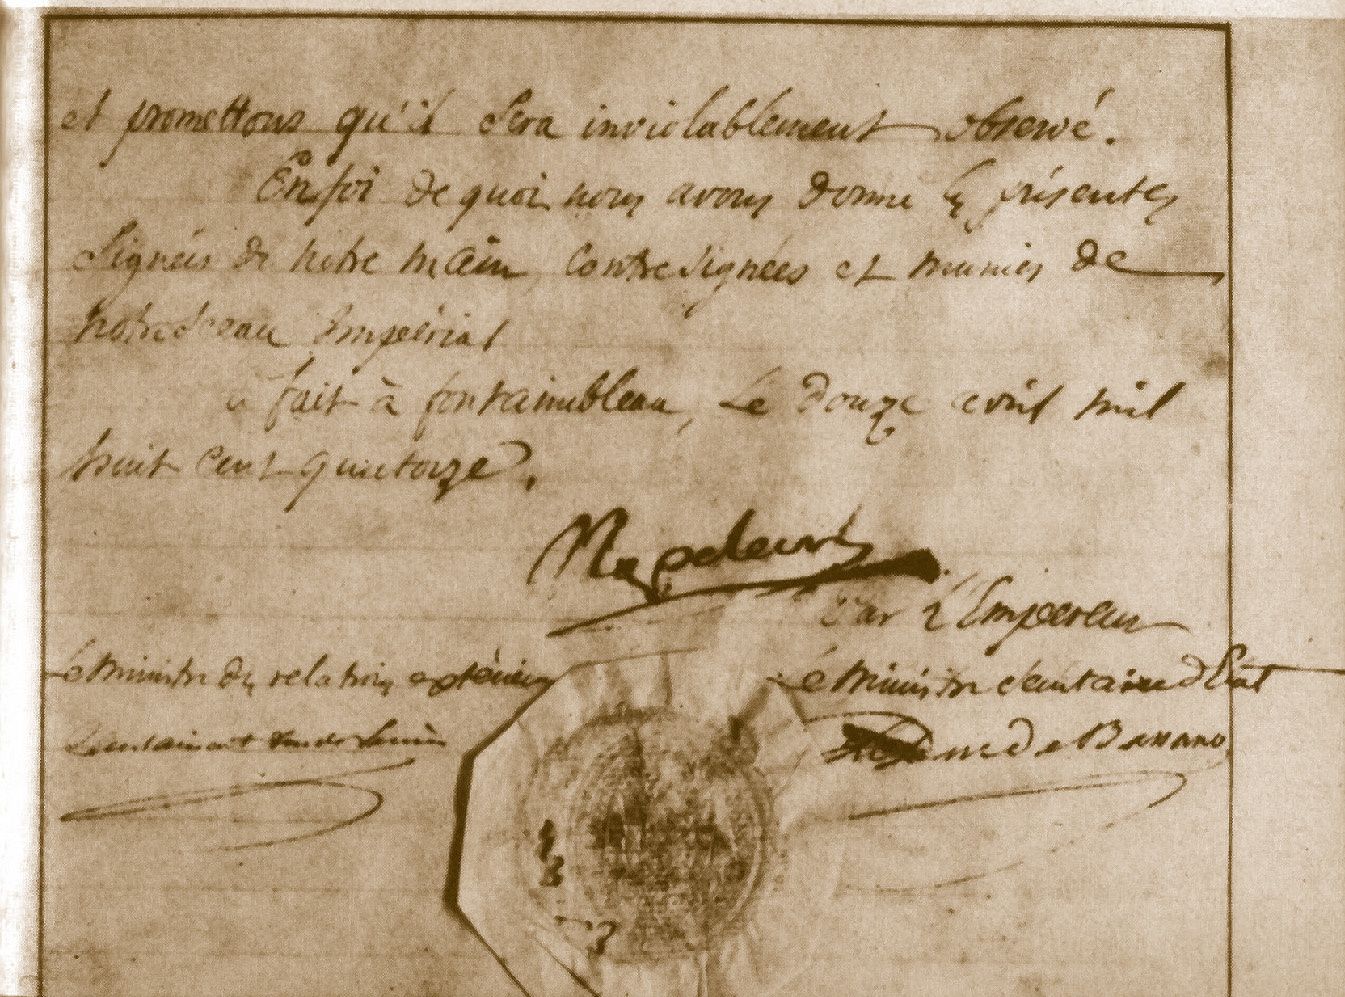 et promettons qu'il sera inviolablement observé.
En foi de quoi nous avons donné les présentes
signées de notre main, contresignées et munies de
notre sceau Impérial
fait à fontainebleau, Le douze avril mil
huit cent quatorze.
Napoleon
Par l'Empereur
Le Ministre des relations extérieures
Le Ministre Secrétaire d'Etat
Caulaincourt duc de Vicence
duc de Bassano